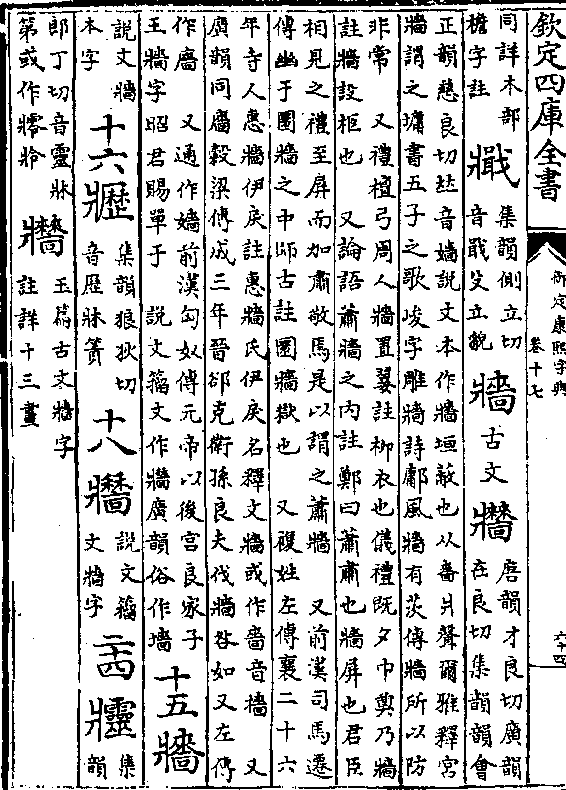 欽定四庫全書
御定康熙字典
卷十七
六十四
同詳木部
檐字註
㸎
集韻側立切
音戢㸎立貌
牆
古文
𤖧
唐韻才良切廣韻
在良切集韻韻會
正韻慈良切𠀤音嬙說文本作牆垣蔽也从嗇爿聲爾雅釋宮
牆謂之墉書五子之歌峻宇雕牆詩鄘風牆有茨傳牆所以防
非常 又禮檀弓周人牆置翣註柳衣也儀禮既夕巾奠乃牆
註牆設柩也 又論語蕭牆之內註鄭曰蕭肅也牆屏也君臣
相見之禮至屏而加肅敬焉是以謂之蕭牆 又前漢司馬遷
傳幽于圜牆之中師古註圜牆獄也 又複姓左傳襄二十六
年寺人惠牆伊戾註惠牆氏伊戾名釋文牆或作嗇音檣 又
廣韻同廧穀梁傳成三年晉郤克衛孫良夫伐牆咎如又左傳
作廧 又通作嬙前漢匈奴傳元帝以後宮良家子
王牆字昭君賜單于 說文籀文作牆廣韻俗作墻
十五
牆
說文牆
本字
十六
㱹
集韻狼狄切
音歷牀簀
十八
𤖧
說文籀
文牆字
二十四
集韻
郎丁切音靈牀
第或作㱓
𤖧
玉篇古文牆字
註詳十三畫